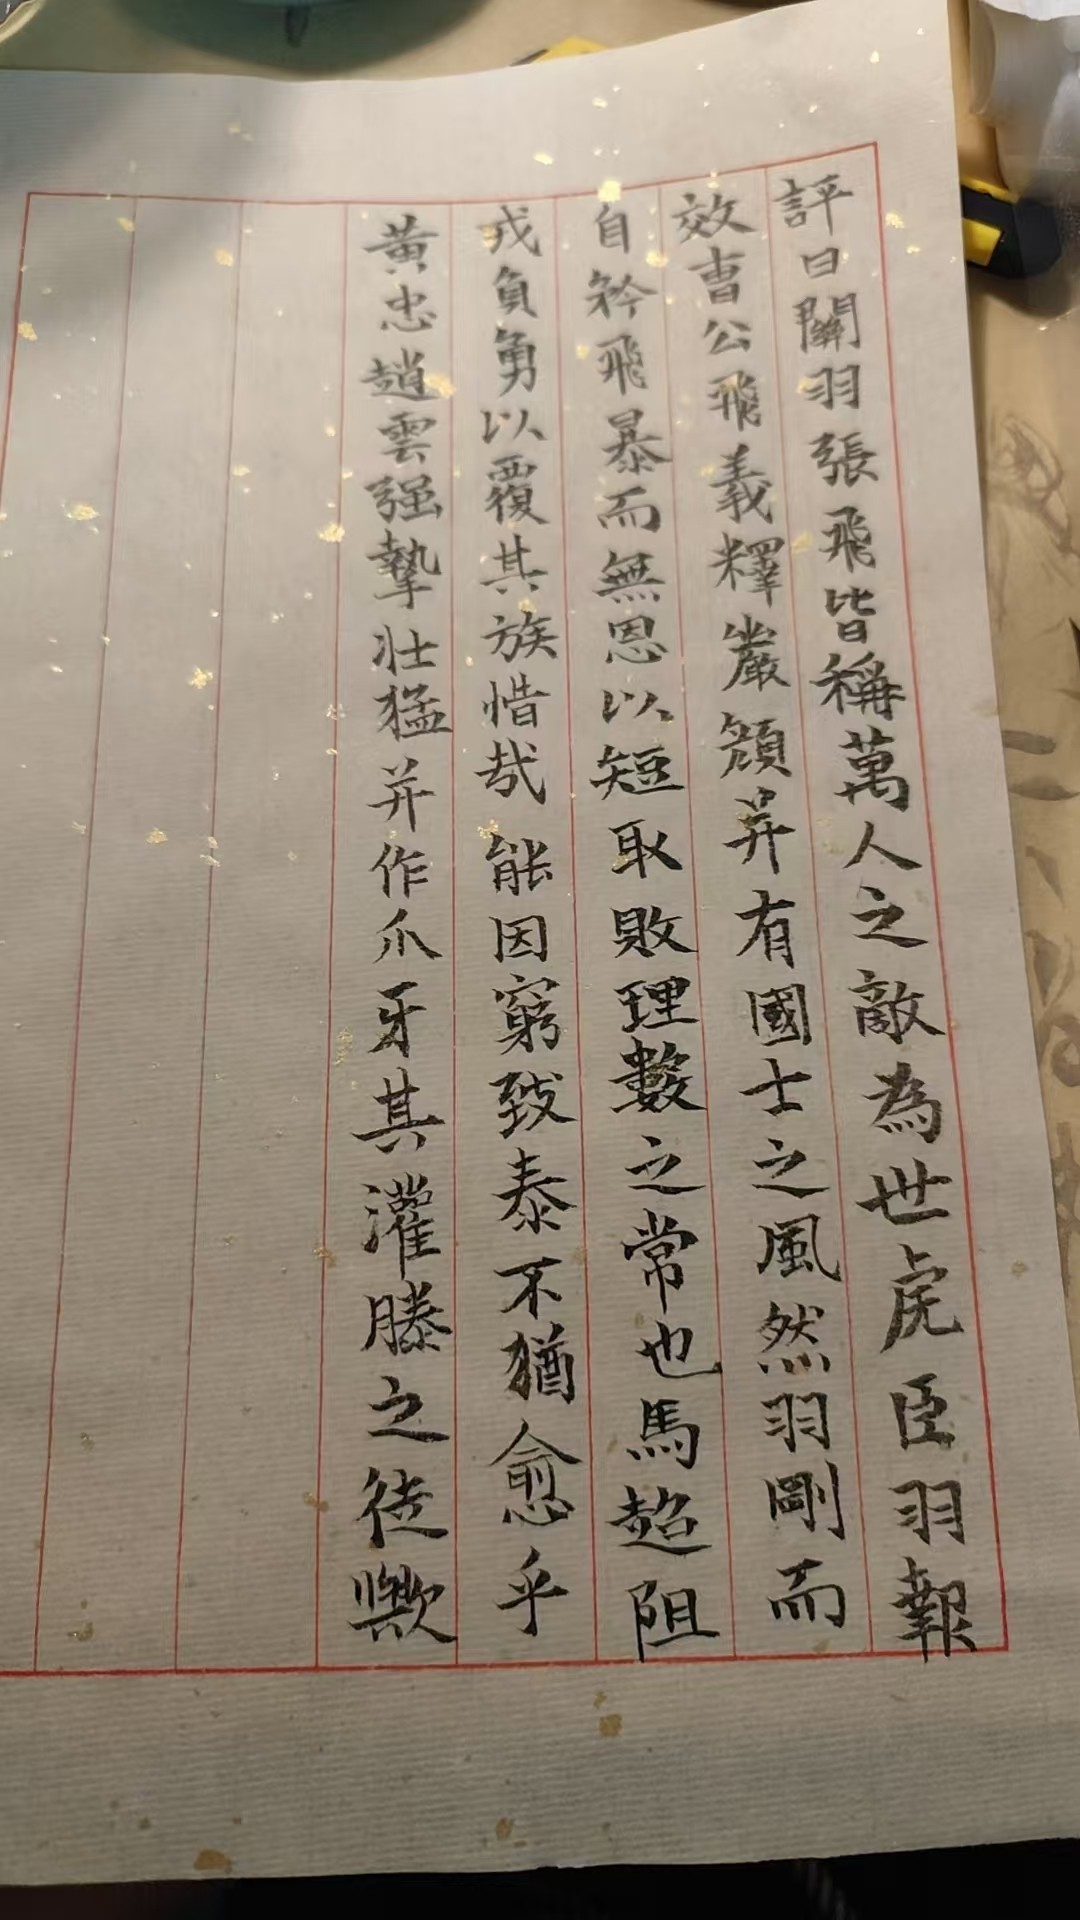 評曰關羽張飛皆稱萬人之敵為世虎臣羽報
效曺公飛義釋嚴顔并有國士之風然羽剛而
自矜飛暴而無恩以短取敗理數之常也馬超阻
戎負勇以覆其族惜哉能因窮致泰不猶愈乎
黃忠趙雲强摯壯猛并作爪牙其灌滕之徒歟